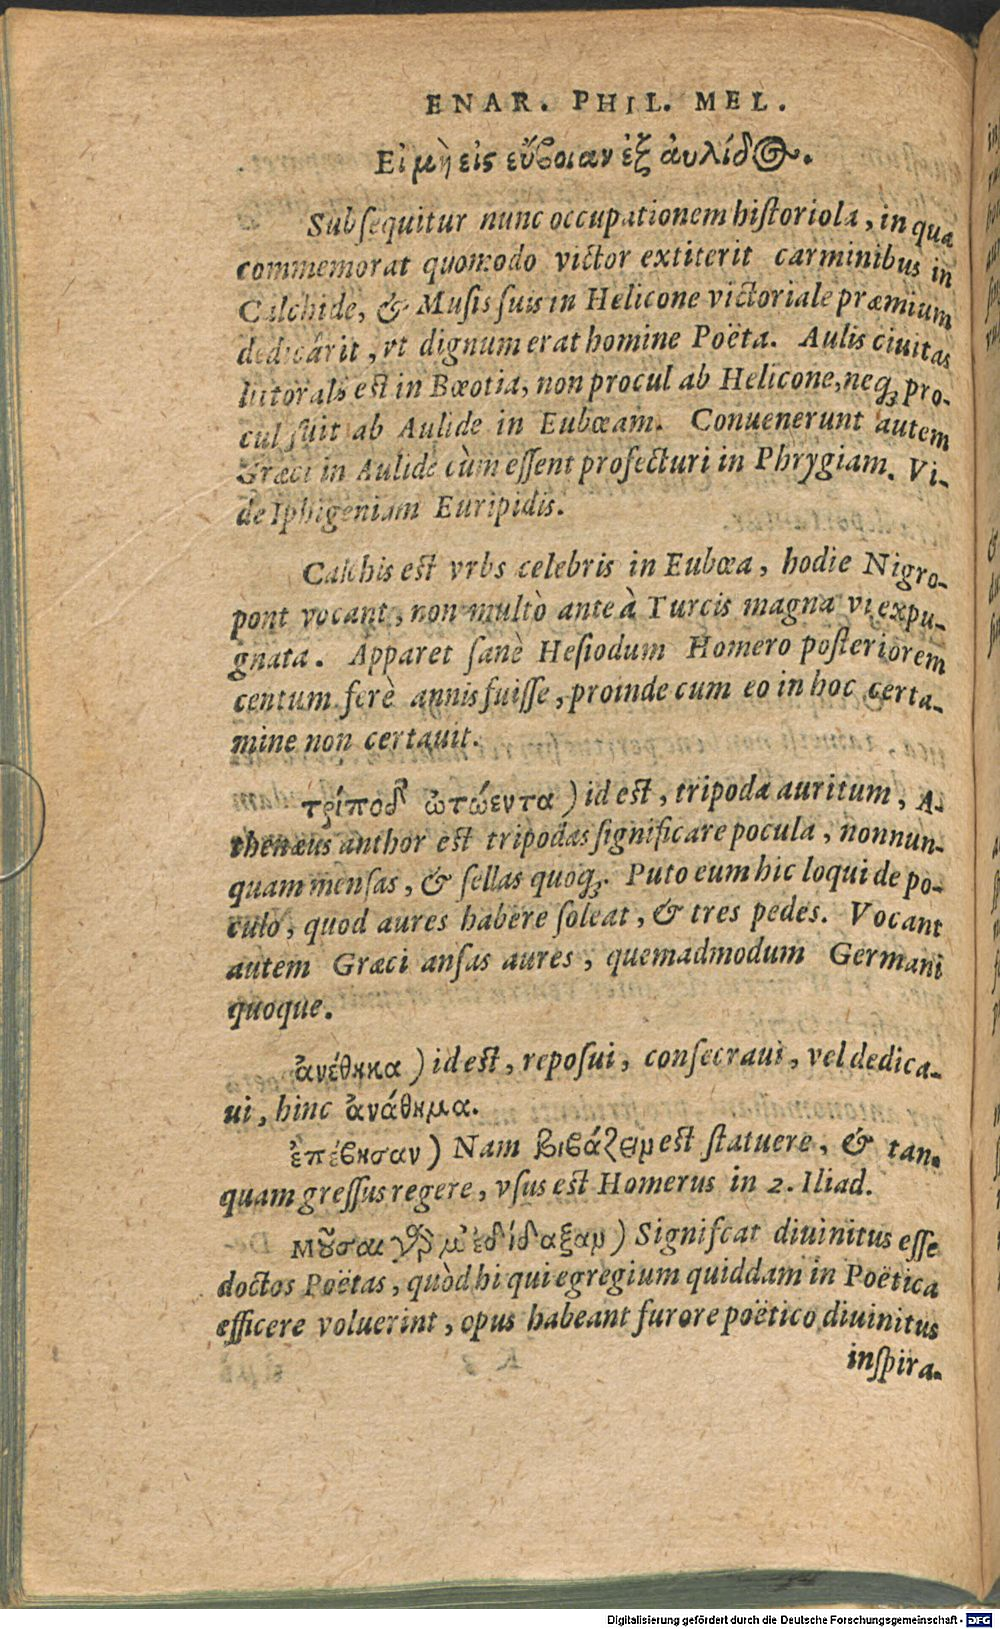 ENAR. PHIL. MEL.
Εἰ μὴ εἰς εὔβοιαν ἐξ ἀυλίδος.
Subsequitur nunc occupationem historiola, in qua
commemorat quomodo victor extiterit carminibus in
Calchide, & Musis suis in Helicone victoriale præmium
dedicârit, vt dignum erat homine Poëta. Aulis ciuitas
littoralis est in Bœotia, non procul ab Helicone, neq; pro-
cul fuit ab Aulide in Eubœam. Conuenerunt autem
Græci in Aulide cùm essent profecturi in Phrygiam. Vi-
de Iphigeniam Euripidis.
Calchis est vrbs celebris in Eubœa, hodie Nigro-
pont vocant, non multò ante à Turcis magna vi expu-
gnata. Apparet sanè Hesiodum Homero posteriorem
centum ferè annis fuisse, proinde cum eo in hoc certa-
mine non certauit.
τρίποδ' ὠτώεντα) id est, tripoda auritum, A-
thenæus anthor est tripodas significare pocula, nonnun-
quam mensas, & sellas quoq;. Puto eum hic loqui de po-
culo, quod aures habere soleat, & tres pedes. Vocant
autem Græci ansas aures, quemadmodum Germani
quoque.
ἀνέθηκα) id est, reposui, consecraui, vel dedica-
ui, hinc ἀνάθημα.
ἐπέβησαν) Nam βιβάζειν est statuere, & tan-
quam gressus regere, vsus est Homerus in 2. Iliad.
μοῦσαι γάρ μ' ἐδίδαξαν) Signifcat diuinitus esse
doctos Poëtas, quòd hi qui egregium quiddam in Poëtica
efficere voluerint, opus habeant furore poëtico diuinitus
inspira-
Digitalisierung gefördert durch die Deutsche Forschungsgemeinschaft - DFG